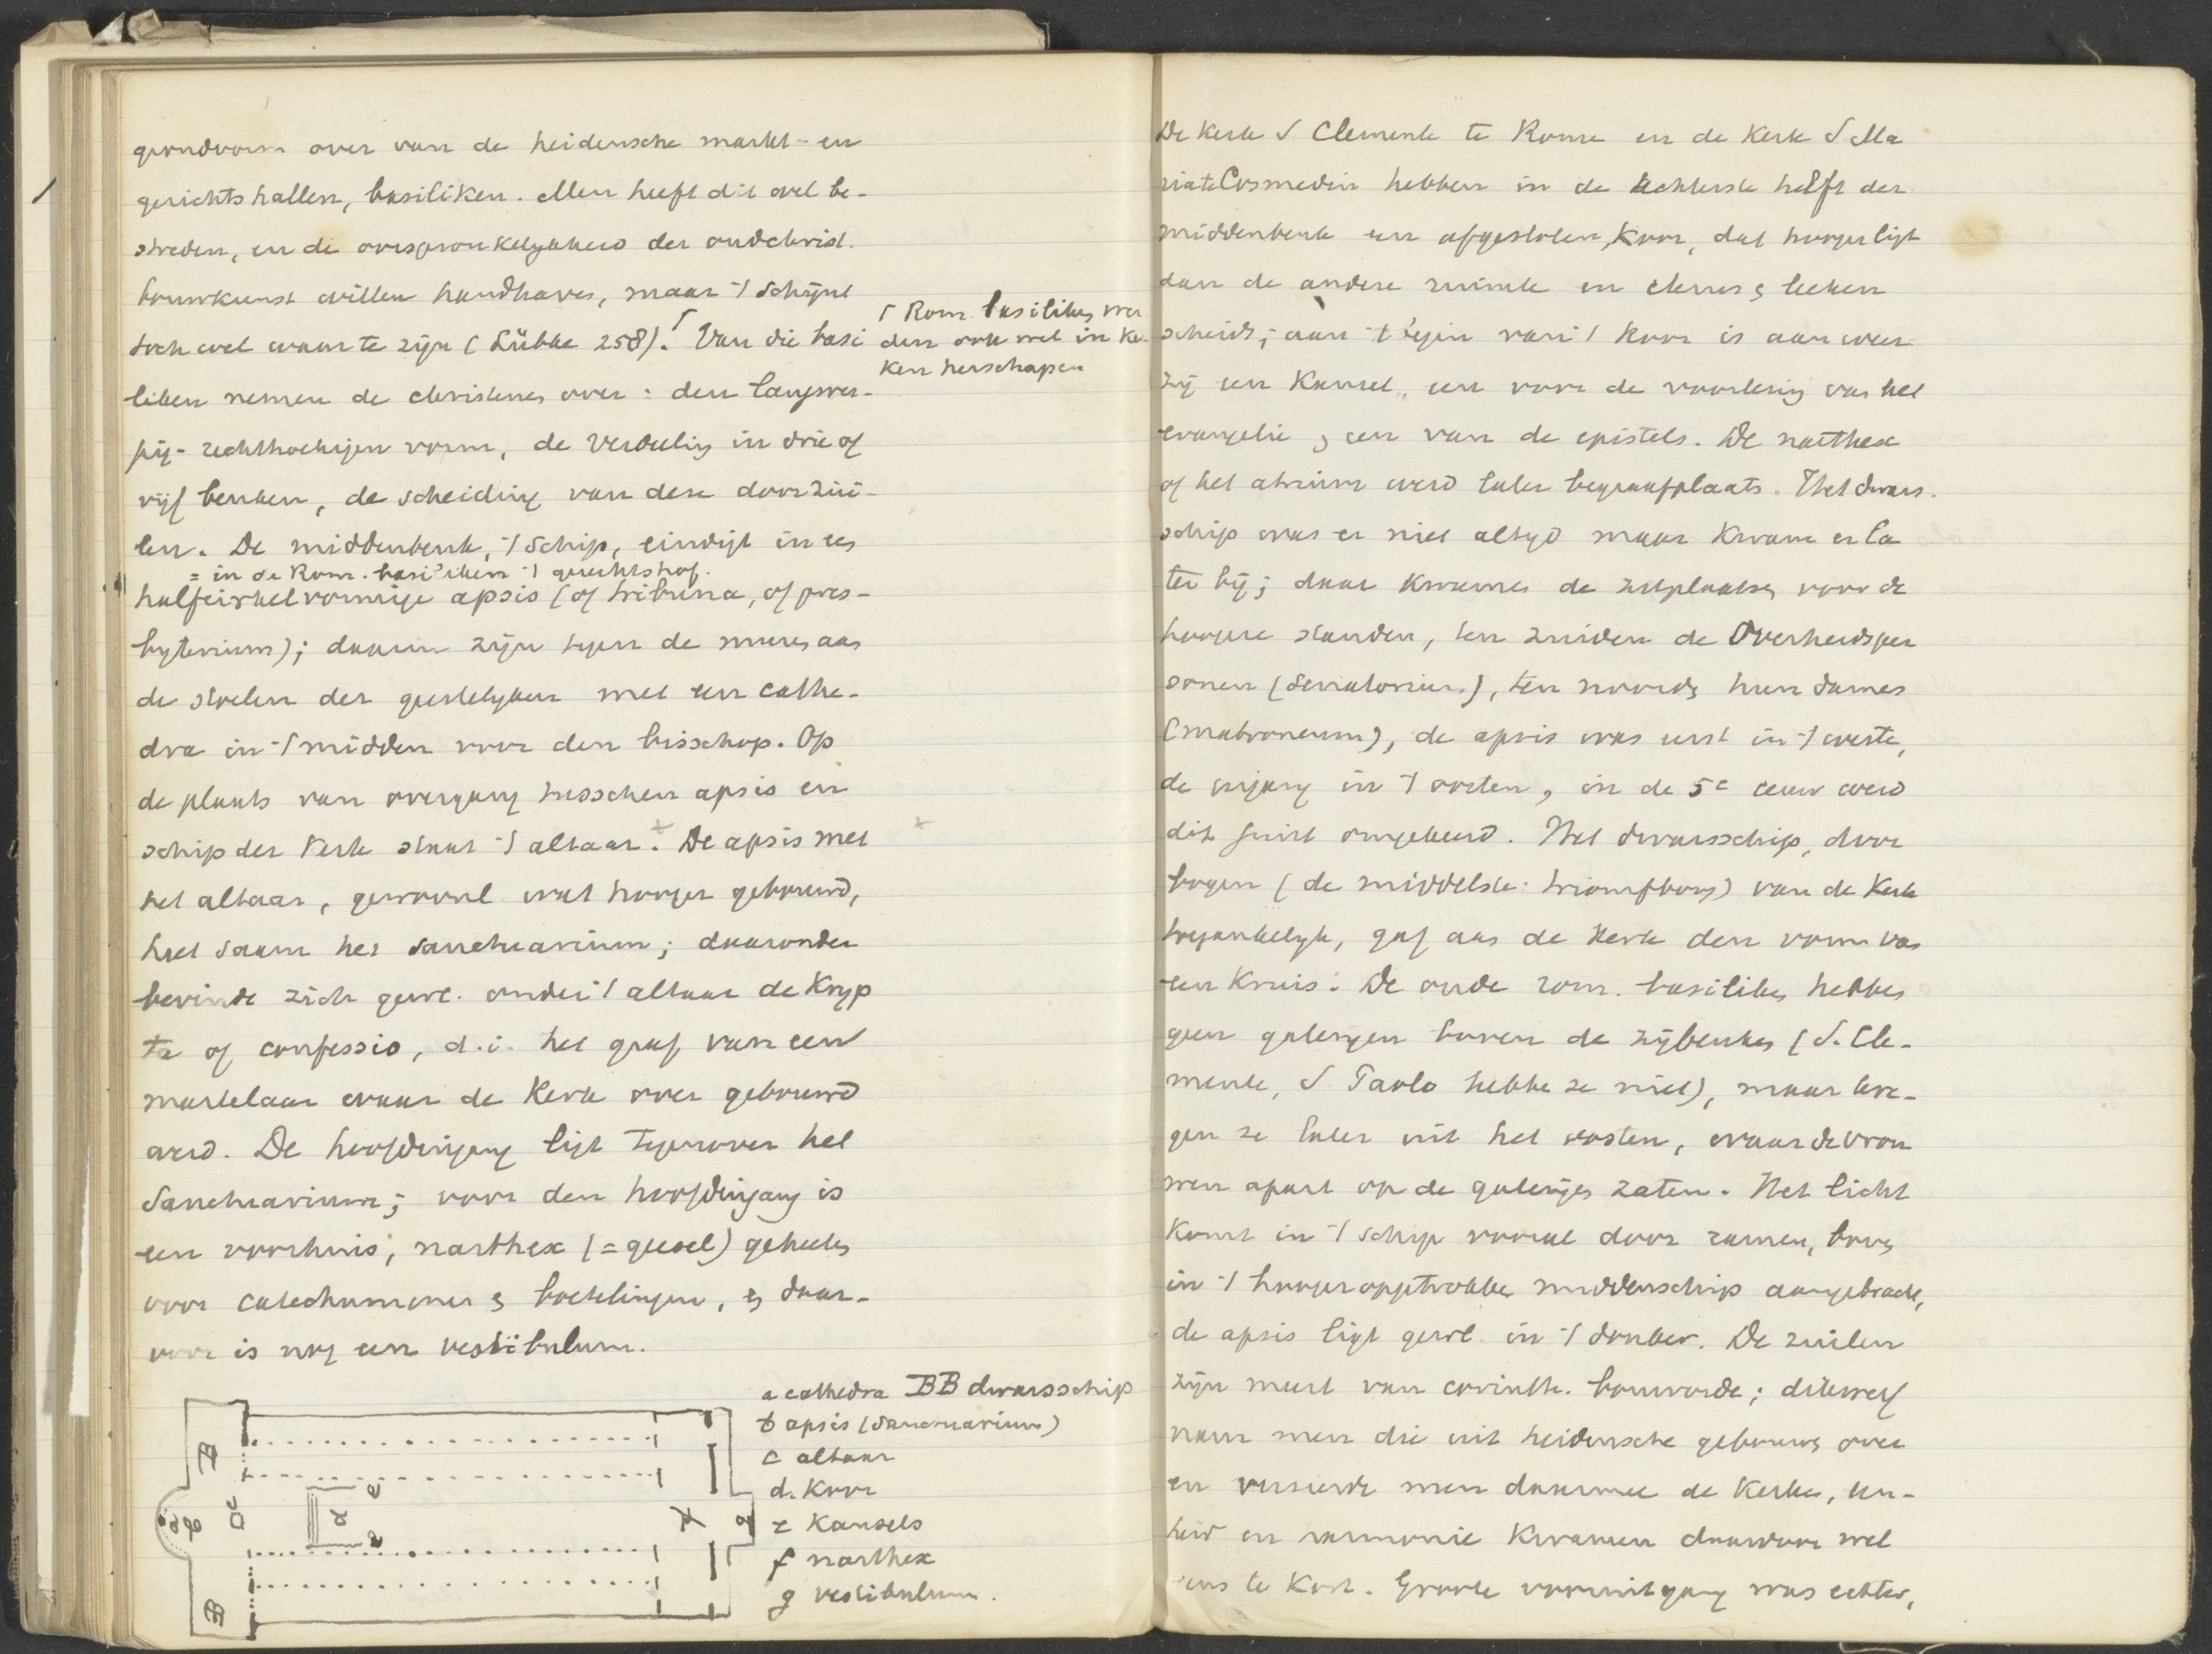 grondvorm over van de heidensche markt- en
gerichtshallen, basiliken. Men heeft dit wel be-
streden, en de oorspronkelykheid der oudchrist.
bouwkunst willen handhaven, maar 't schijnt
toch wel waar te zijn (Lübke 258).┌ Van die basi
liken nemen de christenen over: den langwer-
pig-rechthoekigen vorm, de verdeeling in drie of
vijf beuken, de scheiding van deze door zui-
len. De middenbeuk, 't schip, eindigt in een
= in de Rom. basiliken 't gerechtshof.
halfcirkelvormige apsis (of tribuna, of pres-
byterium); daarin zijn tegen de muren aan
de stoelen der geestelyken met een cathe-
dra in 't midden voor den bisschop. Op
de plaats van overgang tusschen apsis en
schip der kerk staat 't altaar. × De apsis met
het altaar, gewoonl. wat hooger gebouwd,
heet saam het sanctuarium; daaronder
bevindt zich gewl. onder 't altaar de Kryp
ta of confessio, d.i. het graf van een
martelaar waar de Kerk over gebouwd
werd. De hoofdingang ligt tegenover het
Sanctuarium; voor den hoofdingang is
een voorhuis, narthex (= geesel) geheeten
voor catechumenen en boetelingen, en daar-
voor is nog een vestibulum.
┌ Rom. basiliken wer
den ook wel in Ker-
ken herschapen
×
a cathedra BB dwarsschip
b apsis (Sanctuarium)
c altaar
d. Koor
e Kansels
f narthex
g vestibulum.
B
a b
c
d
e
e
f
g
B
De Kerk S Clemente te Rome en de Kerk S Ma
ria te Cosmedin hebben in de achterste helft der
middenbeuk een afgesloten Koor, dat hooger ligt
dan de andere ruimte en clerus en leeken
scheidt; aan 't begin van 't Koor is aan weer
zij een Kansel, een voor de voorlezing van het
evangelie, een van de epistels. De narthex
of het atrium werd later begraafplaats. Het dwars-
schip was er niet altyd maar Kwam er la
ter bij; daar Kwamen de zitplaatsen voor de
hoogere standen, ten zuiden de Overheidsper
sonen (senatorium), ten noorden hun dames
(matroneum), de apsis was eerst in 't westen,
de ingang in 't oosten, in de 5e eeuw werd
dit juist omgekeerd. Het dwarsschip, door
bogen (de middelste: triomfboog) van de Kerk
toegankelyk, gaf aan de Kerk den vorm van
een Kruis. De oude rom. basiliken hebben
geen galerijen boven de zijbeuken (S. Cle-
mente, S Paolo hebben ze niet), maar kre-
gen ze later uit het oosten, waar de vrou
wen apart op de galerijen zaten. Het licht
komt in 't schip vooral door ramen, boven
in 't hooger opgetrokken middenschip aangebracht,
de apsis ligt gewl. in 't donker. De zuilen
zijn meest van corinth. bouworde; dikwerf
nam men die uit heidensche gebouwen over
en versierde men daarmee de Kerken, een-
heid en harmonie Kwamen daardoor wel
eens te Kort. Groote vooruitgang was echter,